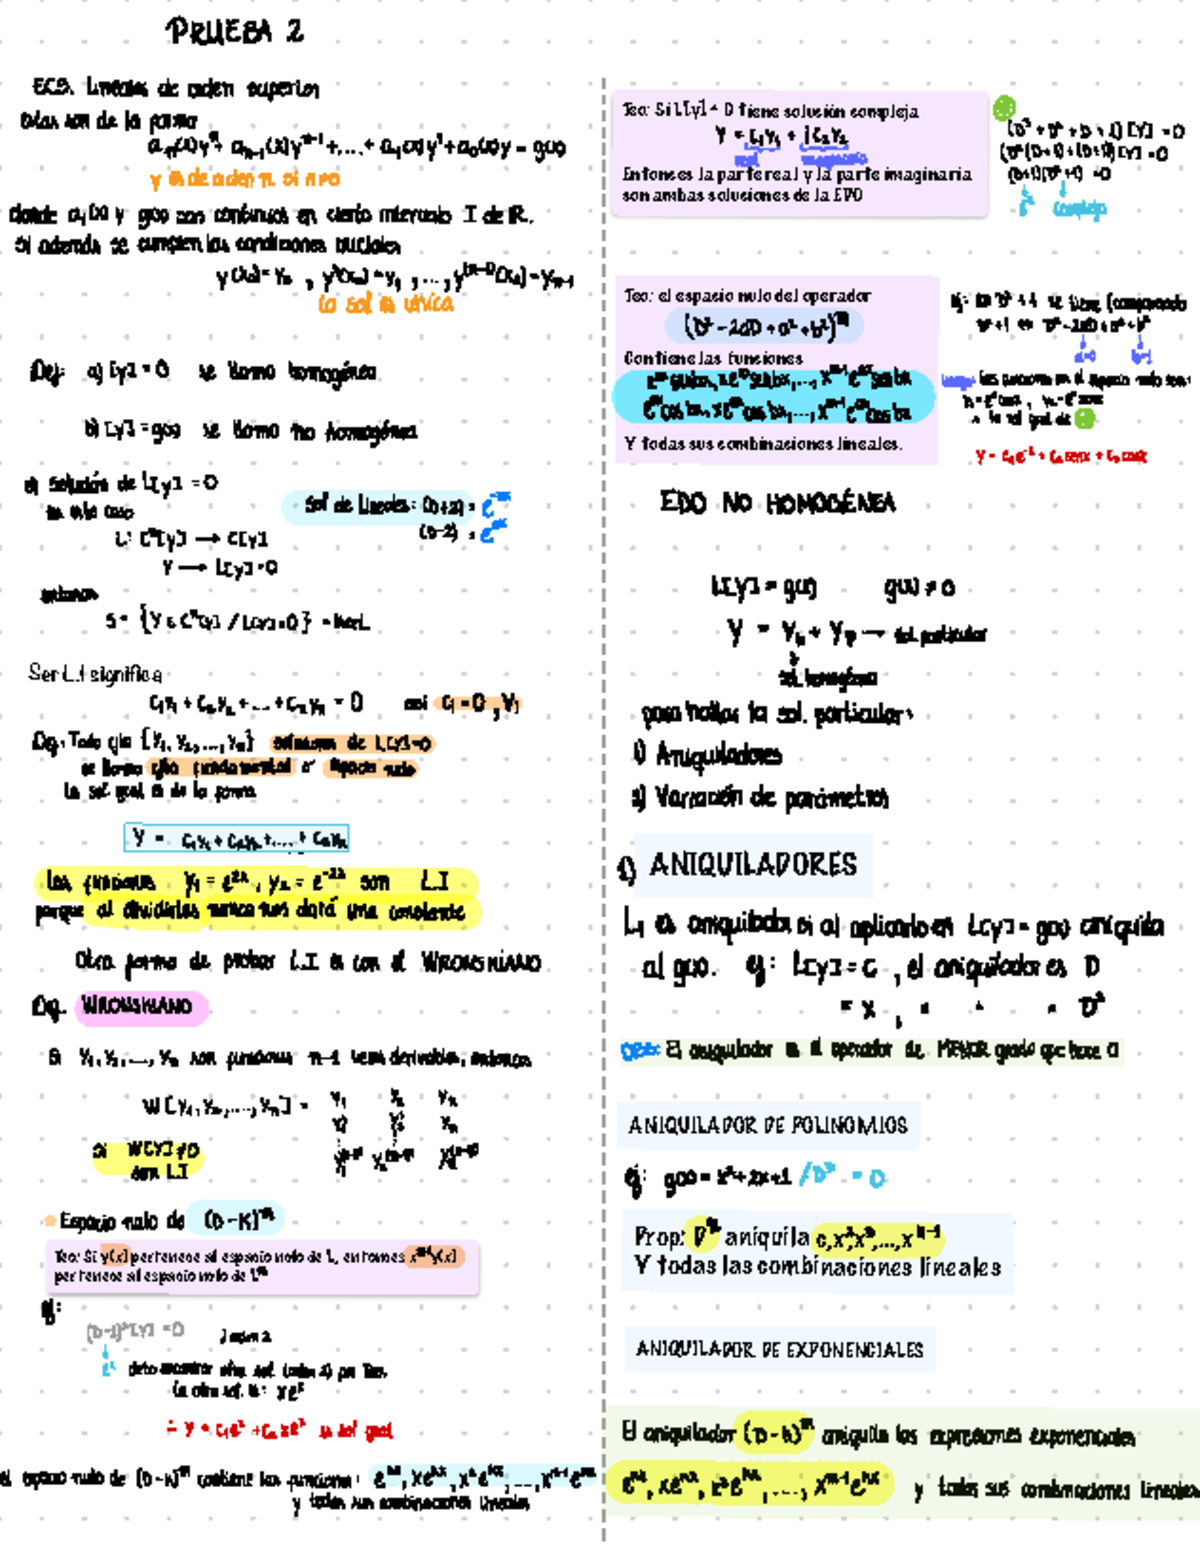 PRUEBA 2
ECS. Lineales de orden superior
estas son de la forma
aₙ(x)yⁿ + aₙ₋₁(x)yⁿ⁻¹ +...+ a₁(x)y¹ + a₀(x)y = g(x)
y es de orden n. si n≠0
donde a₁(x) y g(x) son continuas en cierto intervalo I de R.
Si además se cumplen las condiciones iniciales
y(x₀) = y₀ , y¹(x₀) = y₁ , ..., y⁽ⁿ⁻¹⁾(x₀) = yₙ₋₁
la sol es única
Def: a) L[y] = 0 se llama homogénea
b) L[y] = g(x) se llama no homogénea
a) Solución de L[y] = 0
en este caso
Sol de Lineales: (D+2) =
(D-2) =
L: Cⁿ[y] → C[y]
y → L[y] = 0
entonces
S = {y ∈ Cⁿ[y] / L[y] = 0} = kerL
Ser L.I significa
c₁y₁ + c₂y₂ + ... + cₙyₙ = 0
Def: Todo cjto {y₁, y₂, ..., yₙ} soluciones de L[y]=0
se llama cjto fundamental o espacio nulo
La sol gral es de la forma
y = c₁y₁ + c₂y₂ + ... + cₙyₙ
Las funciones y₁ = e²ˣ , y₂ = e⁻²ˣ son L.I
porque al dividirlas nunca nos dará una constante
Otra forma de probar L.I es con el WRONSKIANO
Def. WRONSKIANO
Si y₁, y₂, ..., yₙ son funciones n-1 veces derivables, entonces
W[y₁, y₂, ..., yₙ] = y₁ y₂ yₙ
Si W[y] ≠ 0
son L.I
Espacio nulo de (D-K)ᵐ
Teo: Si y(x) pertenece al espacio nulo de L, entonces xᵐ⁻¹y(x)
pertenece al espacio nulo de Lᵐ
ej:
(D-1)²[y] = 0 } orden 2
eˣ debo encontrar otra sol. (orden 2) por Teo.
La otra sol. es: xeˣ
∴ y = c₁eˣ + c₂xeˣ es sol gral
el espacio nulo de (D-k)ᵐ contiene las funciones: eᵏˣ, xeᵏˣ, x²eᵏˣ, ..., xᵐ⁻¹eᵏˣ
y todas sus combinaciones lineales
Teo: Si L[y] = 0 tiene solución compleja
y = c₁y₁ + i c₂y₂
real imaginaria
Entonces la parte real y la parte imaginaria
son ambas soluciones de la EDO
(D³ + D² + D + 1)[y] = 0
(D²(D+1) + (D+1))[y] = 0
(D+1)(D²+1) = 0
complejo
Teo: el espacio nulo del operador
(D² - 2aD + a² + b²)ᵐ
Contiene las funciones
eᵃˣsenbx, xeᵃˣsenbx, ..., xᵐ⁻¹eᵃˣsenbx
eᵃˣcosbx, xeᵃˣcosbx, ..., xᵐ⁻¹eᵃˣcosbx
Y todas sus combinaciones lineales.
D²+1 ⇔ D²-2aD+a²+b²
a=0 b=1
y = c₁e⁻ˣ + c₂senx + c₃cosx
EDO NO HOMOGÉNEA
L[y] = g(x) g(x) ≠ 0
y = yₕ + yₚ → sol. particular
sol. homogénea
para hallar la sol. particular:
1) Aniquiladores
2) Variación de parámetros
1) ANIQUILADORES
L₁ es aniquilador si al aplicarlo en L[y] = g(x) aniquila
al g(x). ej: L[y] = c , el aniquilador es D
= x , " " " D²
OBS: El aniquilador es el operador de MENOR grado que hace 0
ANIQUILADOR DE POLINOMIOS
ej: g(x) = x²+2x+1 /D³ = 0
Prop: Dᵐ aniquila c,x²,x³,...,xᵐ⁻¹
Y todas las combinaciones lineales
ANIQUILADOR DE EXPONENCIALES
El aniquilador (D-k)ᵐ aniquila las expresiones exponenciales
eᵏˣ, xeᵏˣ, x²eᵏˣ, ..., xᵐ⁻¹eᵏˣ y todas sus combinaciones lineales